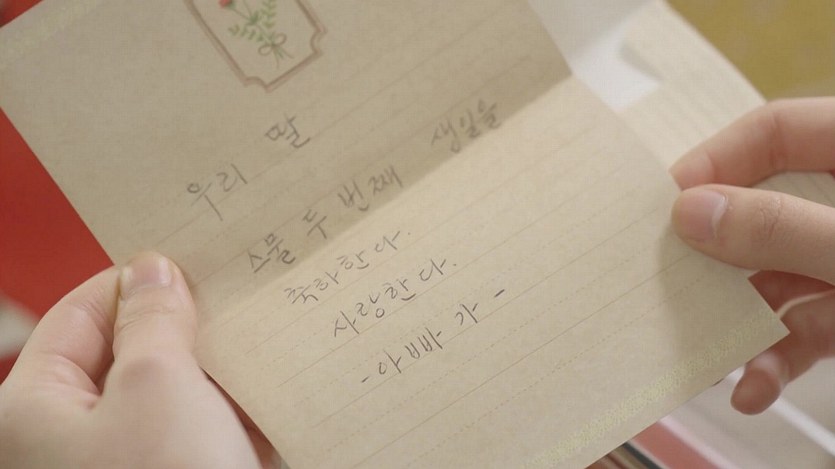 우리 딸
스물 두 번째 생일을
축하한다.
사랑한다.
-아빠가-